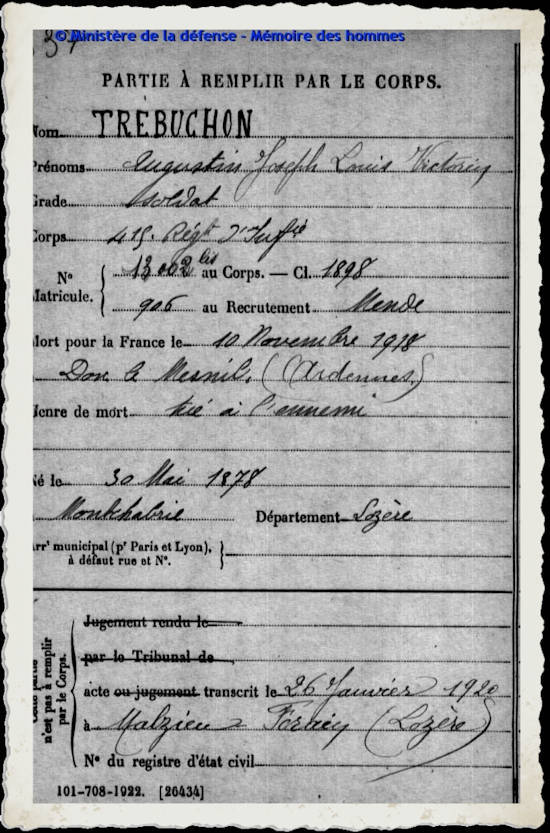 © Ministère de la défense - Mémoire des hommes
37
PARTIE À REMPLIR PAR LE CORPS.
Nom TRÉBUCHON
Prénoms Augustin Joseph Louis Victorin
Grade soldat
Corps 415. Régt d'Inffie
N° Matricule. { 13.002 bis au Corps. — Cl. 1898
906 au Recrutement Mende
Mort pour la France le 10 Novembre 1918
Dom le Mesnil. (Ardennes)
Genre de mort tué à l'ennemi
Né le 30 Mai 1878
Montchabrie Département Lozère
Arrt municipal (pr Paris et Lyon), }
à défaut rue et N°.
Cette partie n'est pas à remplir par le Corps. {
Jugement rendu le
par le Tribunal de
acte ou jugement transcrit le 26 Janvier 1920
à Malzieu Forain (Lozère)
N° du registre d'état civil
101-708-1922. [26434]